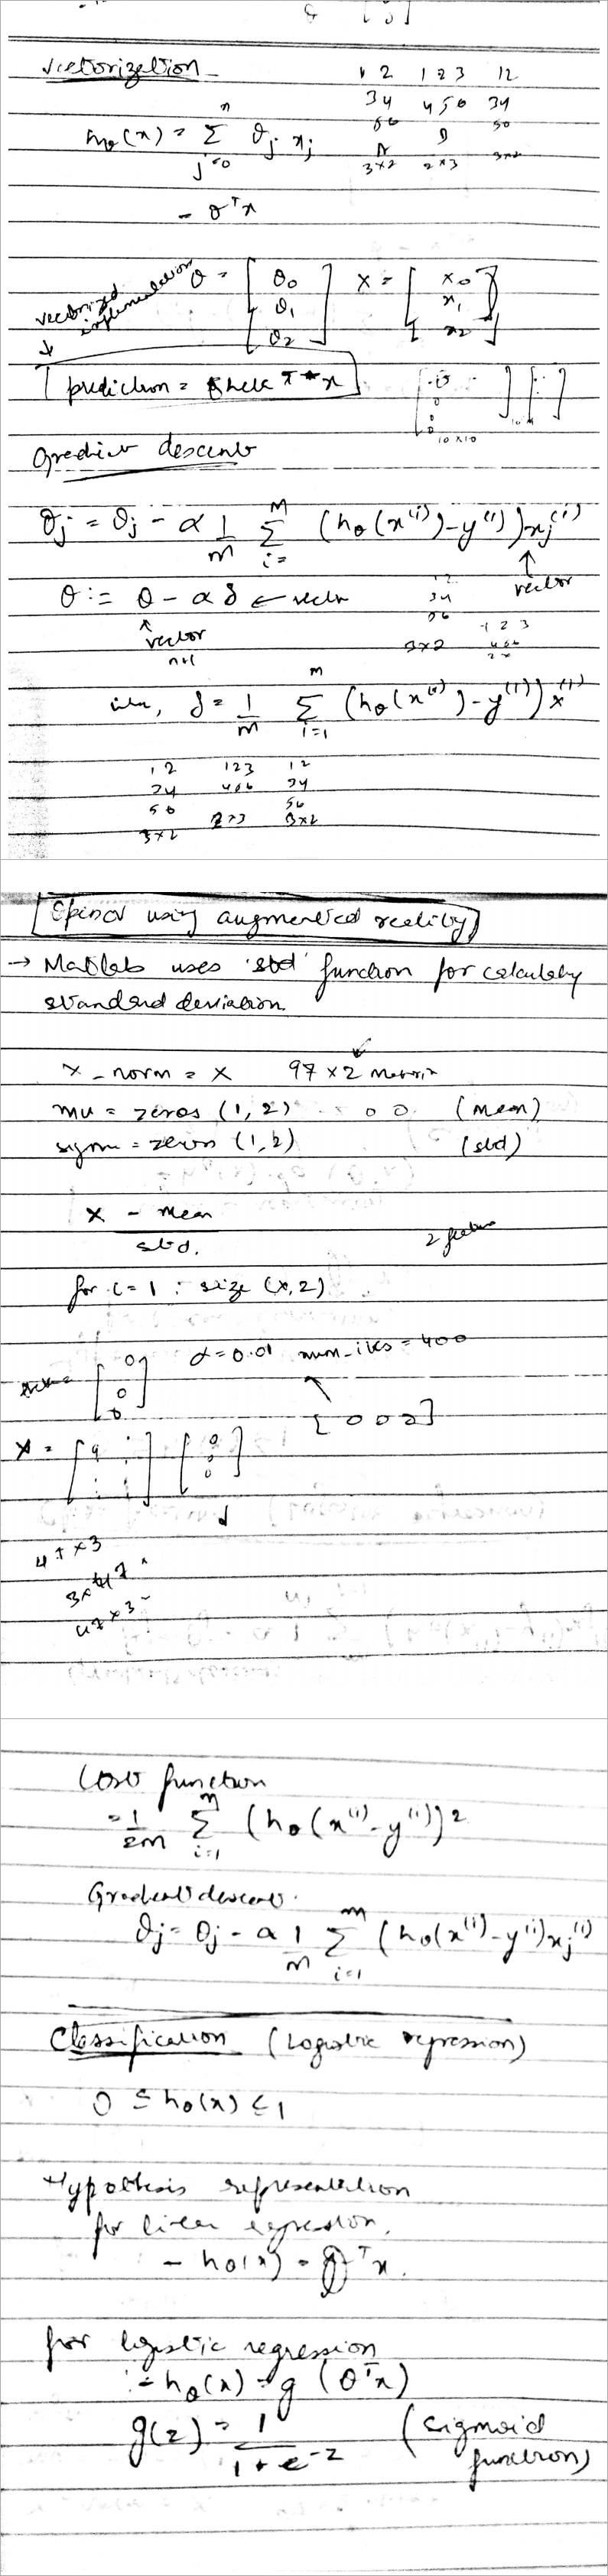 Vectorization
1 2   1 2 3   1 2
3 4   4 5 6   3 4
5 6   5 6
3×2   2×3   3×2
hθ(x) = Σ θj xj
n
j=0
= θᵀx
vectorized implementation
θ = [θ0 θ1 θ2]   X = [x0 x1 x2]
prediction = theta T * x
10×10
Gradient descent
θj = θj - α 1/m Σ (hθ(x⁽ⁱ⁾) - y⁽ⁱ⁾) xj⁽ⁱ⁾
M
i=
vector
θ := θ - α δ ← vector
vector
n+1
1 2
3 4
5 6
3×2
1 2 3
4 5 6
δ = 1/m Σ (hθ(x⁽ⁱ⁾) - y⁽ⁱ⁾) x⁽ⁱ⁾
m
i=1
1 2   1 2 3   1 2
3 4   4 5 6   3 4
5 6   5 6
3×2   2×3   3×2
using augmented reality
→ Matlab uses 'std' function for calculating
standard deviation
x - norm = x   97 × 2 Matrix
mu = zeros (1, 2)   0 0   (mean)
sigma = zeros (1, 2)   (std)
x - mean
std.
2 features
for i = 1 : size (x, 2)
[0 0 0]   α = 0.01   num_iters = 400
[0 0 0]
X =
47 × 3
3 × 47
47 × 3
Cost function
= 1/2m Σ (hθ(x⁽ⁱ⁾ - y⁽ⁱ⁾))²
m
i=1
Gradient descent.
θj = θj - α 1/m Σ (hθ(x⁽ⁱ⁾) - y⁽ⁱ⁾) xj⁽ⁱ⁾
m
i=1
Classification (Logistic regression)
0 ≤ hθ(x) ≤ 1
Hypothesis representation
for linear regression,
- hθ(x) = θᵀx.
for logistic regression
:= hθ(x) = g (θᵀx)
g(z) = 1/1+e⁻ᶻ   (sigmoid
function)